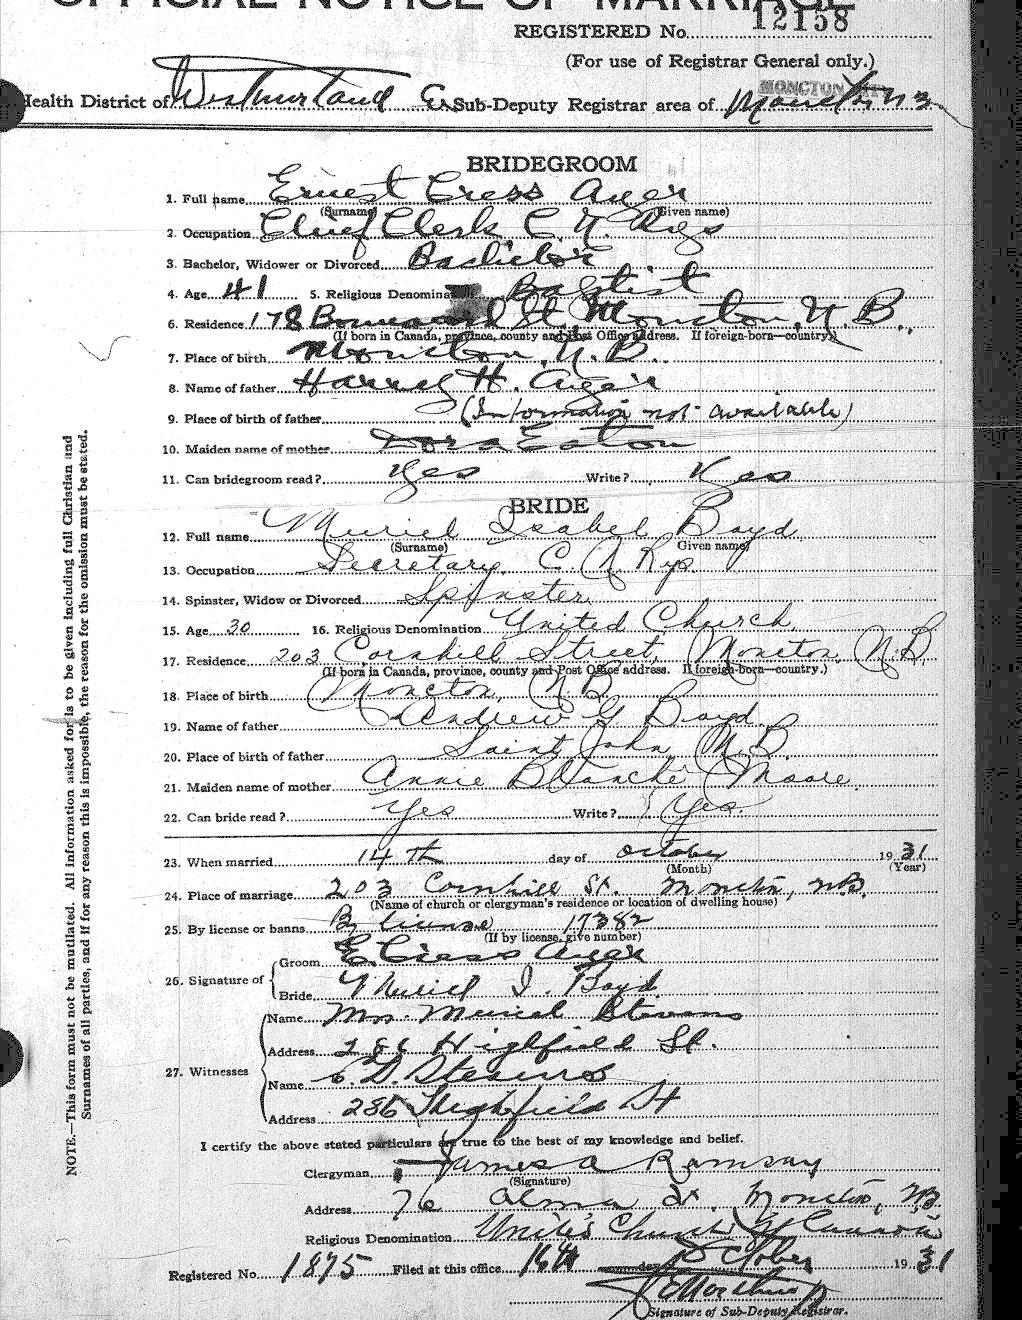 OFFICIAL NOTICE OF MARRIAGE
REGISTERED No. 12158
(For use of Registrar General only.)
MONCTON CITY
Health District of Westmorland Co. Sub-Deputy Registrar area of Moncton N B
BRIDEGROOM
1. Full name Ernest Cress Ayer
(Surname) (Given name)
2. Occupation Chief Clerk C. N. Rys
3. Bachelor, Widower or Divorced Bachelor
4. Age 41 5. Religious Denomination Baptist
6. Residence 178 St. Moncton, N. B.
(If born in Canada, province, county and Post Office address. If foreign-born—country.)
7. Place of birth Moncton, N. B.
8. Name of father Harvey H. Ayer
9. Place of birth of father (Information not available)
10. Maiden name of mother Dora Eaton
11. Can bridegroom read? Yes Write? Yes
BRIDE
12. Full name Muriel Isabel Boyd
(Surname) (Given name)
13. Occupation Secretary C. N. Rys.
14. Spinster, Widow or Divorced Spinster
15. Age 30 16. Religious Denomination United Church
17. Residence 203 Cornhill Street, Moncton, N.B
(If born in Canada, province, county and Post Office address. If foreign-born—country.)
18. Place of birth Moncton, N.B.
19. Name of father Andrew G. Boyd
20. Place of birth of father Saint John N.B.
21. Maiden name of mother Annie Blanche Moore
22. Can bride read? Yes Write? Yes.
23. When married 14th day of October 1931
(Month) (Year)
24. Place of marriage 203 Cornhill St. Moncton, N.B.
(Name of church or clergyman's residence or location of dwelling house)
25. By license or banns By license 17382
(If by license, give number)
26. Signature of Groom E Cress Ayer
Bride Muriel I. Boyd
27. Witnesses Name Mrs. Muriel Stevens
Address 286 Highfield St.
Name D. Stevens
Address 286 Highfield St
I certify the above stated particulars are true to the best of my knowledge and belief.
Clergyman James A Ramsay
(Signature)
Address 76 Alma St. Moncton, N.B
Religious Denomination United Church of Canada
Registered No. 1875 Filed at this office 16th October 1931
Signature of Sub-Deputy Registrar.
NOTE.—This form must not be mutilated. All information asked for is to be given including full Christian and
Surnames of all parties, and if for any reason this is impossible, the reason for the omission must be stated.